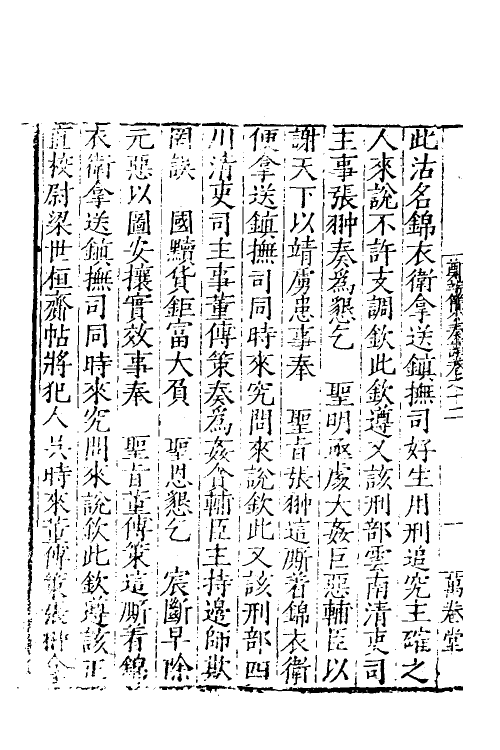 卷之十二 一 萬卷堂
此沽名錦衣衛拿送鎮撫司好生用刑追究主確之
人來說不許支調欽此欽遵又該刑部雲南清吏司
主事張翀奏爲懇乞 聖明亟處大姦巨惡輔臣以
謝天下以靖虜患事奉 聖旨張翀這厮着錦衣衛
便拿送鎮撫司同時來究問來說欽此又該刑部四
川清吏司主事董傳策奏爲姦貪輔臣主持邊師欺
罔誤 國黷貨鉅富大負 聖恩懇乞 宸斷早除
元惡以圖安攘實效事奉 聖旨董傳策這厮着錦
衣衛拿送鎮撫司同時來究問來說欽此欽遵該正
直校尉梁世桓齎帖將犯人吳時來董傳策張翀拿